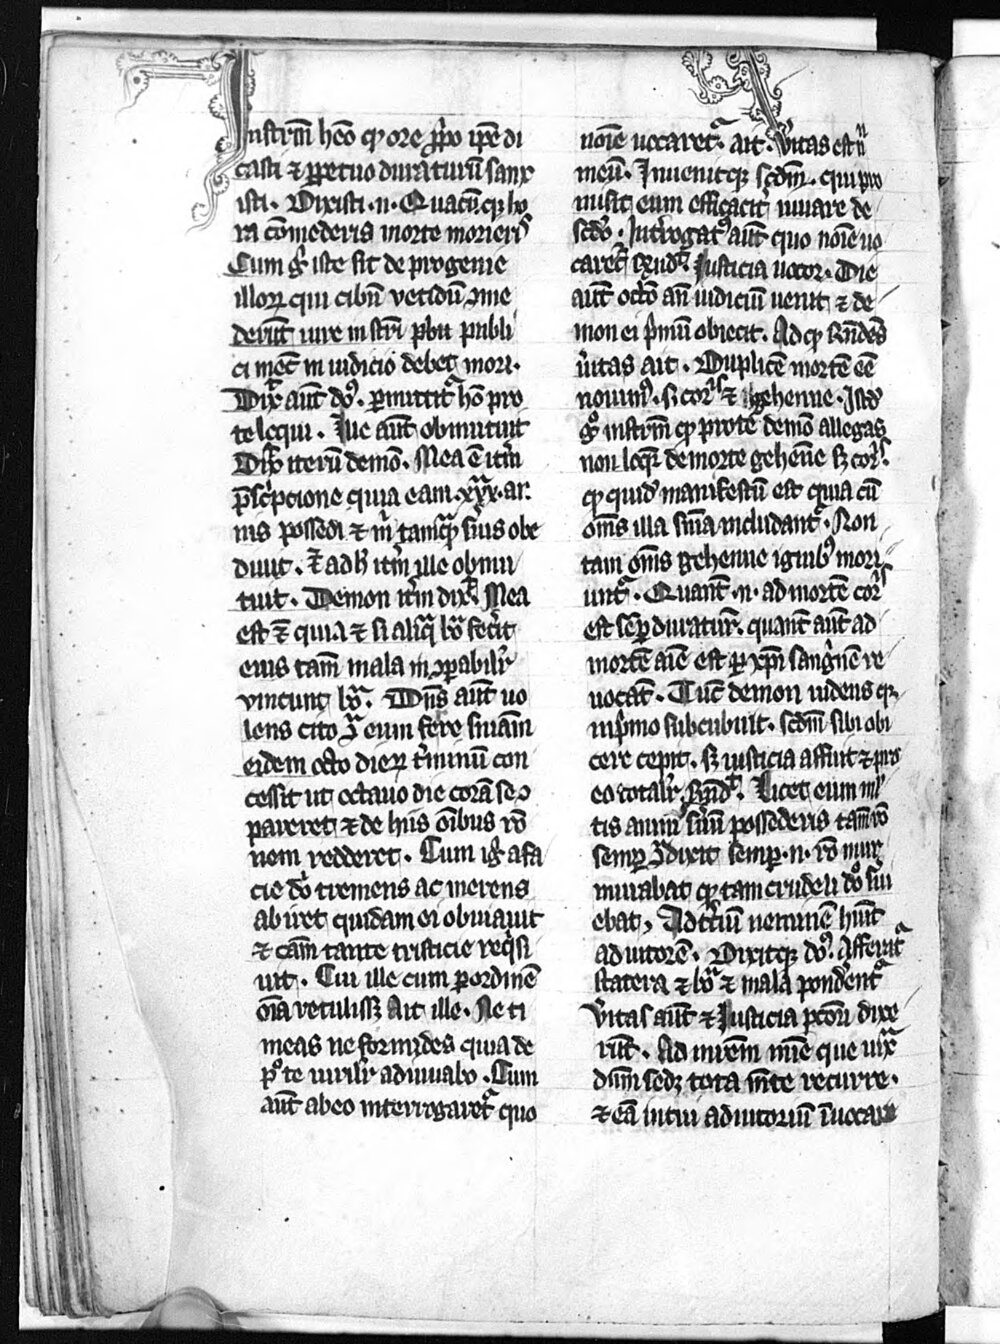 Instrm̄ heo qꝫ ore ꝓprio ip̄e di
casti ⁊ ꝑpetuo duraturū sanx
isti. Dixisti .n. Quacūqꝫ ho
ra cōmederis morte morieris
Cum gͦ iste sit de progenie
illoꝝ qui cibū vetidū ꝯme
derūt iure instrī pbti publi
ci mect̄ in iudicio debet mori.
Dix̄ aūt dn̄s. ꝑmittitᷣ hō pro
te loqui. Iue aūt obmutuit
Dix̄ iterū demō. Mea ē itm̄
p̄scͥpcione quia eam .xxx. an
nis possedi ⁊ m̄ tamqᷓ suus obe
diuit. ⁊ ad h̄ itm̄ ille obmu
tuit. Demon itm̄ dix̄ Mea
est ēt quia ⁊ si aliqᷓ bōͣ fecit
eius tam̄ mala inꝯꝑabilit̄
vincunt bōͣ. Dn̄s aūt uo
lens cito ꝯᷓ eum ferre sniam
eidem octo dieꝝ t̄minū con
cessit ut octauo die corā se ꝯ
pareret ⁊ de hiis oībus rō
nem redderet. Cum igͥ a fa
cie dn̄i tremens ac merens
abiret quidam ei obuiauit
⁊ cām tante tristicie reqͥsi
uit. Cui ille cum ꝑ ordinē
oīa retulissꝫ Ait ille. Ne ti
meas ne formides quia de
pͥͦ te uirilit̄ adiuuabo. Cum
aūt ab eo interrogaretᷣ quo
noīe uocaretᷣ. ait. Vͥitas est n̄
meū. Inuenitqꝫ scdm̄. qui pro
misit eum efficacit̄ iuuare de
scd̄o. Int̄rogatꝰ aūt quo noīe uo
caretᷣ Rn̄dit Iusticia uocor. Die
aūt octō an̄ iudiciū uenit ⁊ de
mon ei pͥmū obiecit. Ad qꝫ Rn̄dens
uͥitas ait. Duplicē mortē eē
nouimꝰ. sꝫ corꝑis ⁊ gehenne. Istd
gͦ instrm̄ qꝫ pro te demō allegas
non loqᷣtᷣ de morte gehēne sꝫ corꝑis.
qꝫ quidē manifestū est quia cū
om̄s illa snīa includantᷣ. Non
tam̄ om̄s gehenne ignibꝰ mori
untᷣ. Quant̄ .n. ad mortē corꝑis
est semꝑ duratur̄. quant̄ aūt ad
mortē aīe est ꝑ xp̄i sangͥnē re
uocat̄. Tūc demon uidens qꝫ
in pͥmo subcubuit. scdm̄ sibi obi
cere cepit. sꝫ iusticia affuit ⁊ pro
eo totalit̄ Rn̄dit. Licet eum ml̄
tis annis seruū possederis tam̄ rō
semꝑ ꝯᷓdixit semꝑ .n. rō mur
murabat qꝫ tam crudeli dn̄o serui
ebat, Ad t̄ciū neminē hūit
adiutorē. Dixitqꝫ dn̄s. Afferatᷣ
statera ⁊ bōͣ ⁊ mala pondent̄ᷣ
Vͥitas aūt ⁊ Iusticia pctōri dixe
rūt. Ad mr̄em mīe que iuxᷓ
dn̄m sedꝫ tota mēte recurre.
⁊ eā in tui adiutoriū īuoca